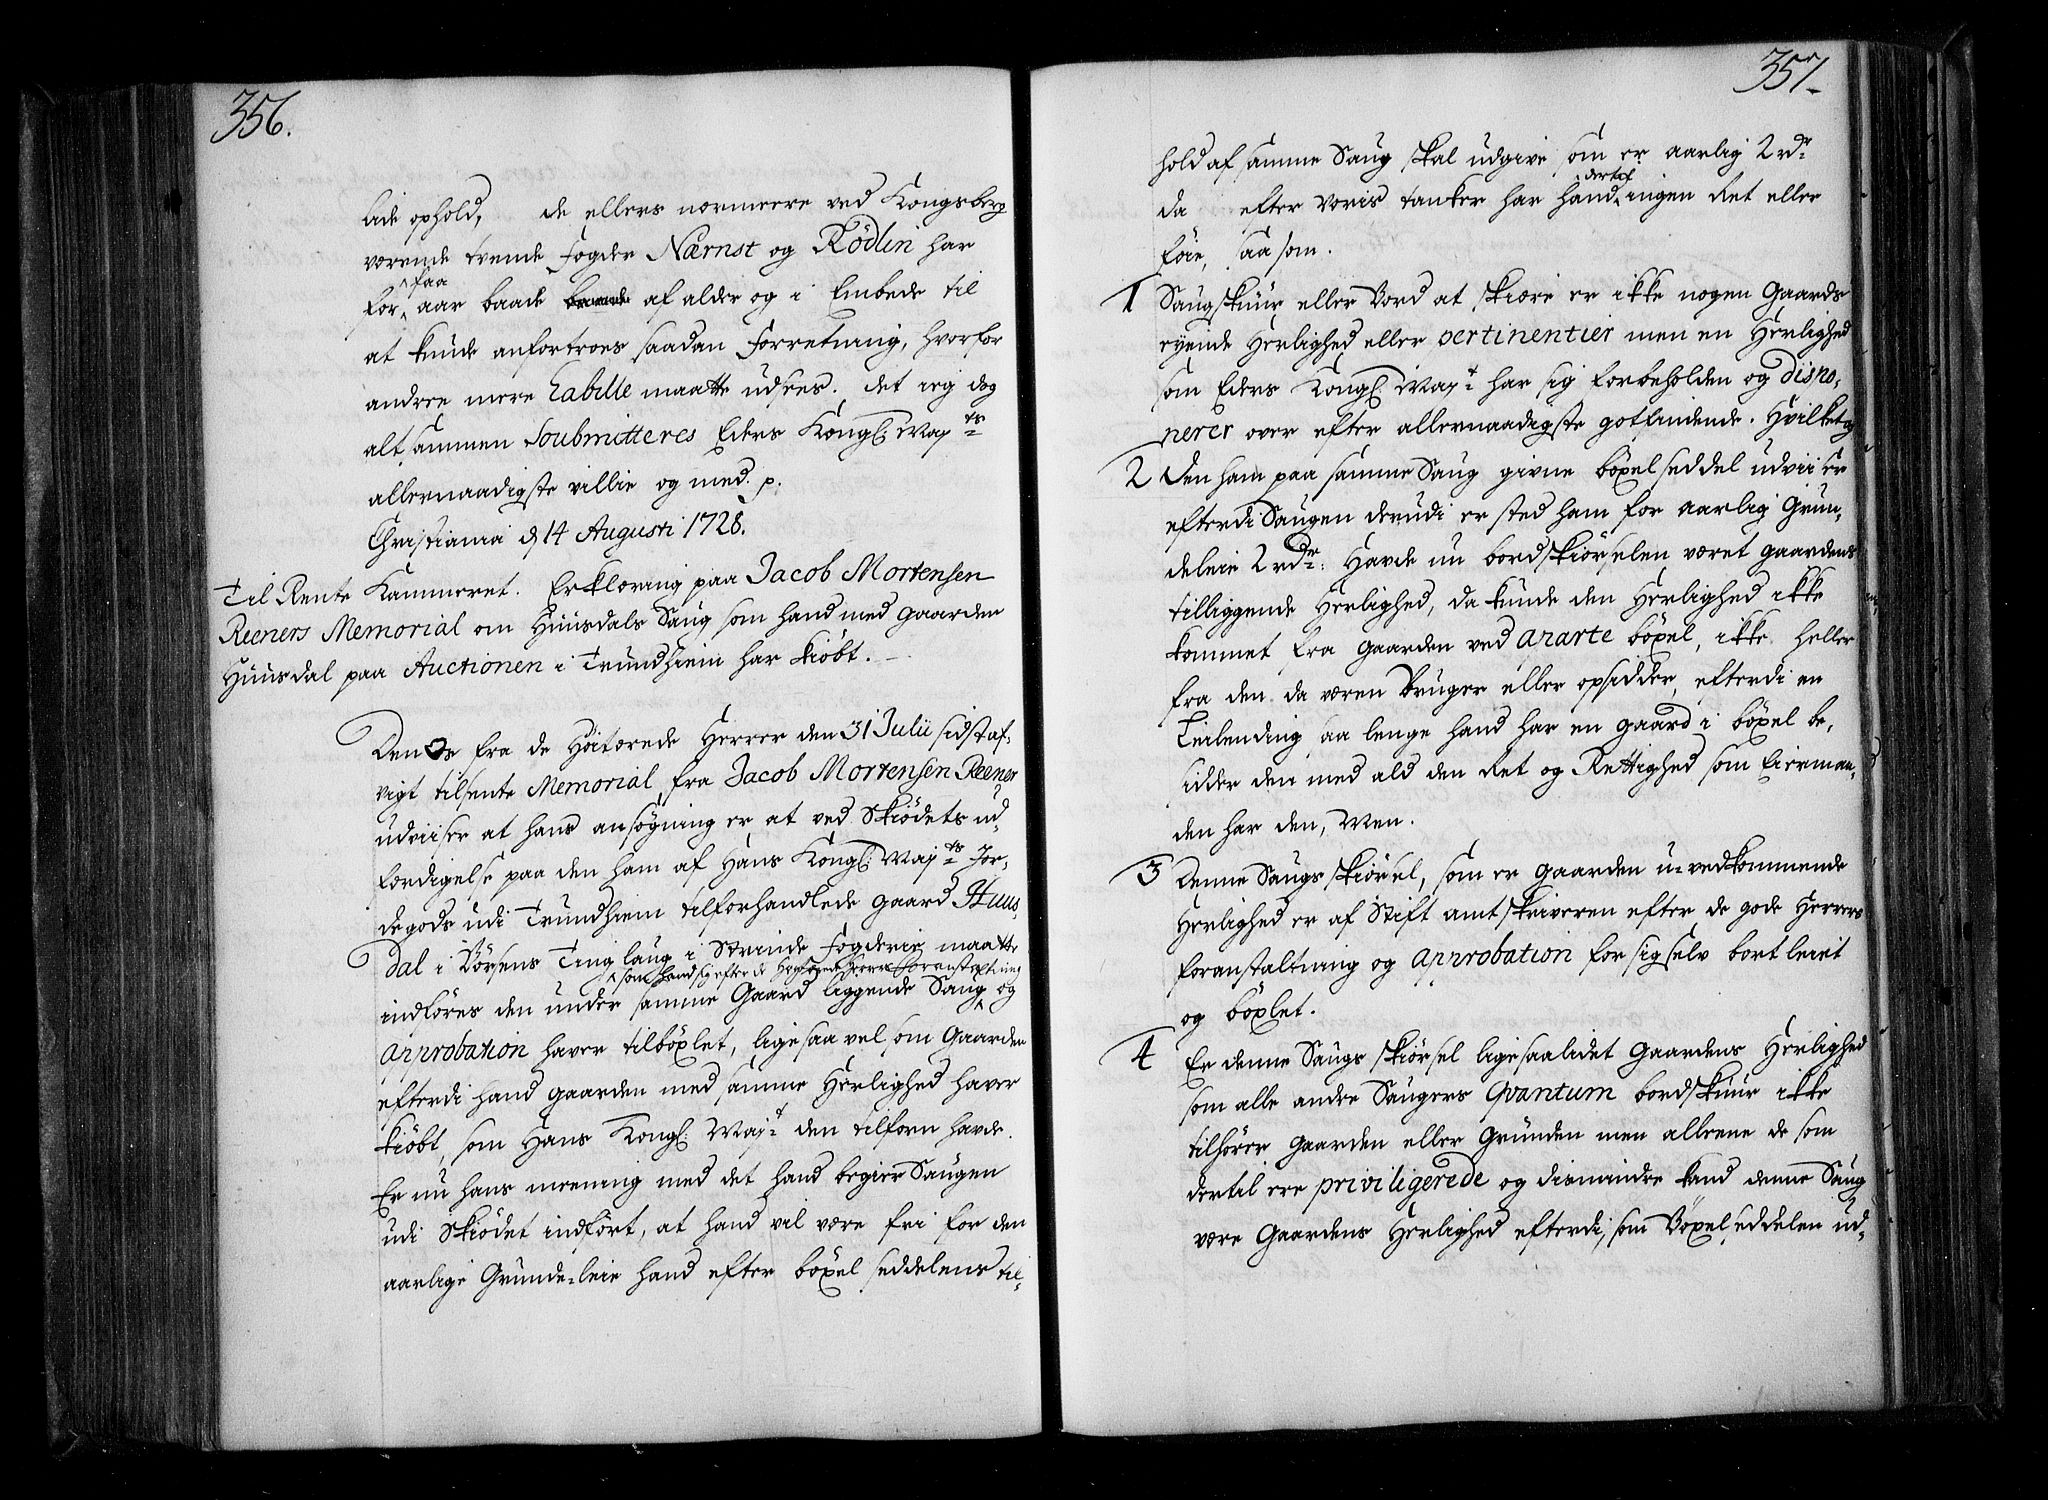 356.
lede ophold, de ellers nermeere ved Kongsberg
værende tvende fogder Nærnst og Rödlin har
for faa aar baade af alder og i Embede til
at kunde anfortroes saadan Forretning, hvorfor
andre mere Cabille maatte udsees. det ieg dog
alt sammen Soubmitteres Eders Kongl: Majts
allernaadigste villie og med p.
Christiania d 14 Augusti 1728.
Til Rente Kammeret. Erklæring paa Jacob Mortensen
Reeners Memorial om Huusdals Saug som hand med gaarden
Huusdal paa Auctionen i Trundhiem har kiöbt.
Den os fra de Höitærede Herrer den 31 Julii sidst af-
vigt tilsente Memorial fra Jacob Mortensen Reener
udviiser at hans ansögning er, at ved Skiödets ud-
færdigelse paa den ham af Hans Kongl: Majts Jor-
degods udi Trundhiem tilforhandlede gaard Huus-
dal i Börsens Tinglaug i Strinde Fogderie maatte
som hand sig efter de Höytærede Herrers Foranstaltning
indföres den under samme Gaard liggende Saug og
Approbation haver tilböxlet, ligesaavel som Gaarden
efterdi hand gaarden med samme Herlighed haver
kiöbt, som Hans Kongl: Majt den tilforn havde.
Er nu hans meening med det hand begier Saugen
udi Skiödet indfört, at hand vil være fri for den
aarlige Grunde-leie hand efter böxel seddelens til-
357.
hold af samme Saug skal udgive, som er aarlig 2 rdr
dertil
da efter voris tanker har hand ingen Ret eller
föie, saasom.
1 Saugskuur eller Bord at skiære er ikke nogen Gaards
eyende Herlighed eller pertinentier men en Herlighed
som Eders Kongl: Majt har sig forbeholden og dispo-
nerer over efter allernaadigste gotfindende. Hvilket og
2 Den ham paa samme Saug givne böxelseddel udviiser
efterdi Saugen derudi er sted ham for aarlig Grun-
deleie 2 rdr: Havde nu bordskiörselen været gaardens
tilliggende Herlighed, da kunde den Herlighed ikke
kommet fra gaarden ved aparte böxel, ikke heller
fra den da væren Bruger eller opsidder, efterdi en
Leilending saa lenge hand har en gaard i böxel be-
sidder den med ald den Ret og Rettighed som Eierman-
den har den, Men.
3 Denne Saugs skiörsel, som er gaarden u-vedkommende
Herlighed er af Stift amtskriveren efter de gode Herrers
foranstaltning og Approbation for sig selv bortleiet
og böxlet.
4 Er denne Saugs skiörsel ligesaalidet Gaardens Herlighed
som alle andre Saugers Qvantum bordskuur ikke
tilhörer gaarden eller Grunden men alleene de som
dertil ere priviligerede og dismindre kand denne Saug
være Gaardens Herlighed efterdi, som Böxelseddelen ud-